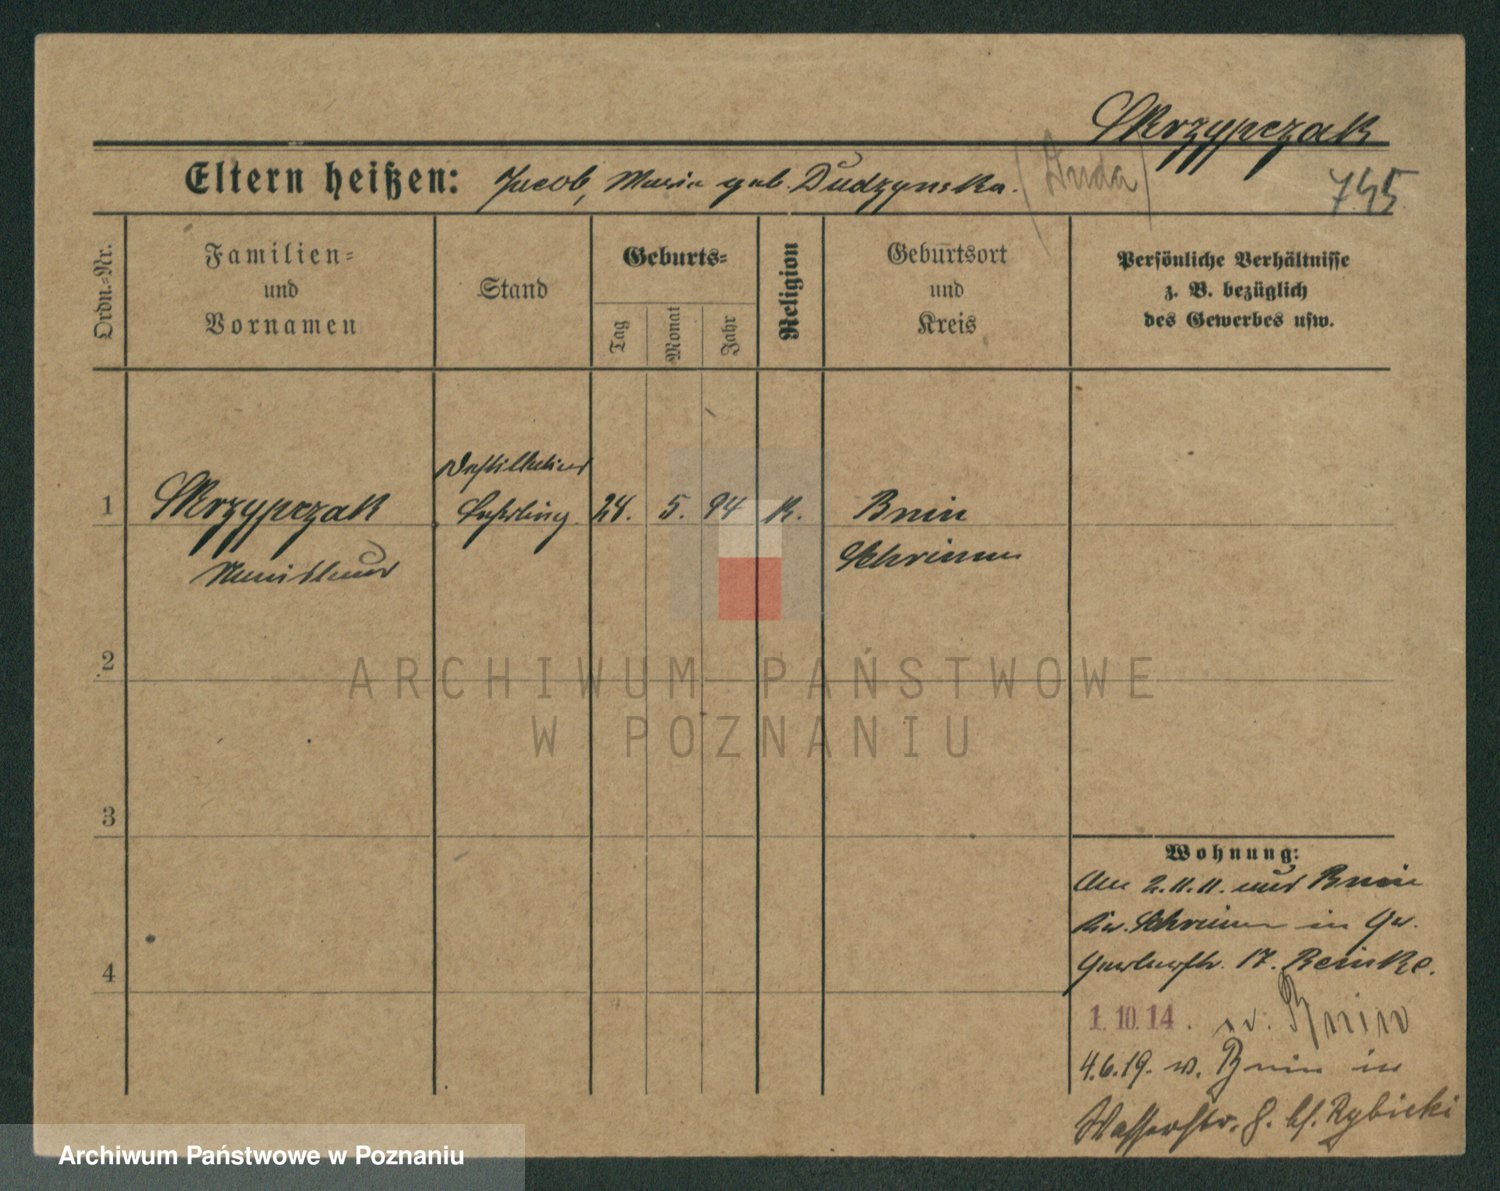 Skrzypczak
Eltern heißen: Jacob, Maria geb. Dudzynska. (Duda)
745
Ordn.-Nr.
Familien-
und
Vornamen
Stand
Geburts-
Tag
Monat
Jahr
Religion
Geburtsort
und
Kreis
Persönliche Verhältnisse
z. B. bezüglich
des Gewerbes usw.
1
Skrzypczak
Destillateur
Lehrling
24. 5. 94 K.
Bnin
Schrimm
2
ARCHIWUM PAŃSTWOWE
W POZNANIU
3
4
Wohnung:
Am 2.11.11. aus Bnin
Kr. Schrimm in
Gerberstr. 17. Reinke.
1. 10. 14. Bnin
4.6.19. v. Bnin in
Wasserstr. 8. bf. Rybicki
Archiwum Państwowe w Poznaniu